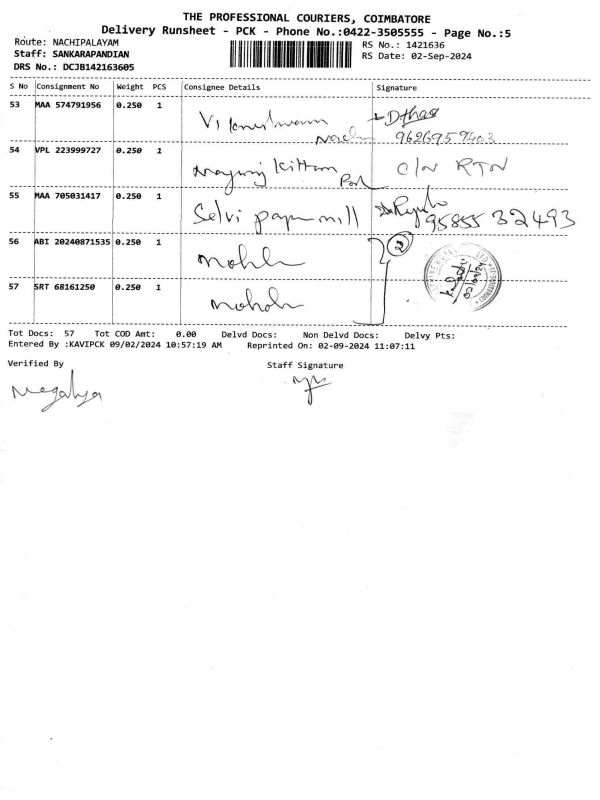 THE PROFESSIONAL COURIERS, COIMBATORE
Delivery Runsheet - PCK - Phone No.:0422-3505555 - Page No.:5
Route: NACHIPALAYAM
Staff: SANKARAPANDIAN
DRS No.: DCJB142163605
RS No.: 1421636
RS Date: 02-Sep-2024
S No Consignment No Weight PCS Consignee Details Signature
53 MAA 574791956 0.250 1
9626959403
54 VPL 223999727 0.250 1 C/N RTN
55 MAA 705031417 0.250 1 Selvi papermill
95855 32493
56 ABI 20240871535 0.250 1
57 SRT 68161250 0.250 1
02/09/24
Tot Docs: 57 Tot COD Amt: 0.00 Delvd Docs: Non Delvd Docs: Delvy Pts:
Entered By :KAVIPCK 09/02/2024 10:57:19 AM Reprinted On: 02-09-2024 11:07:11
Verified By Staff Signature